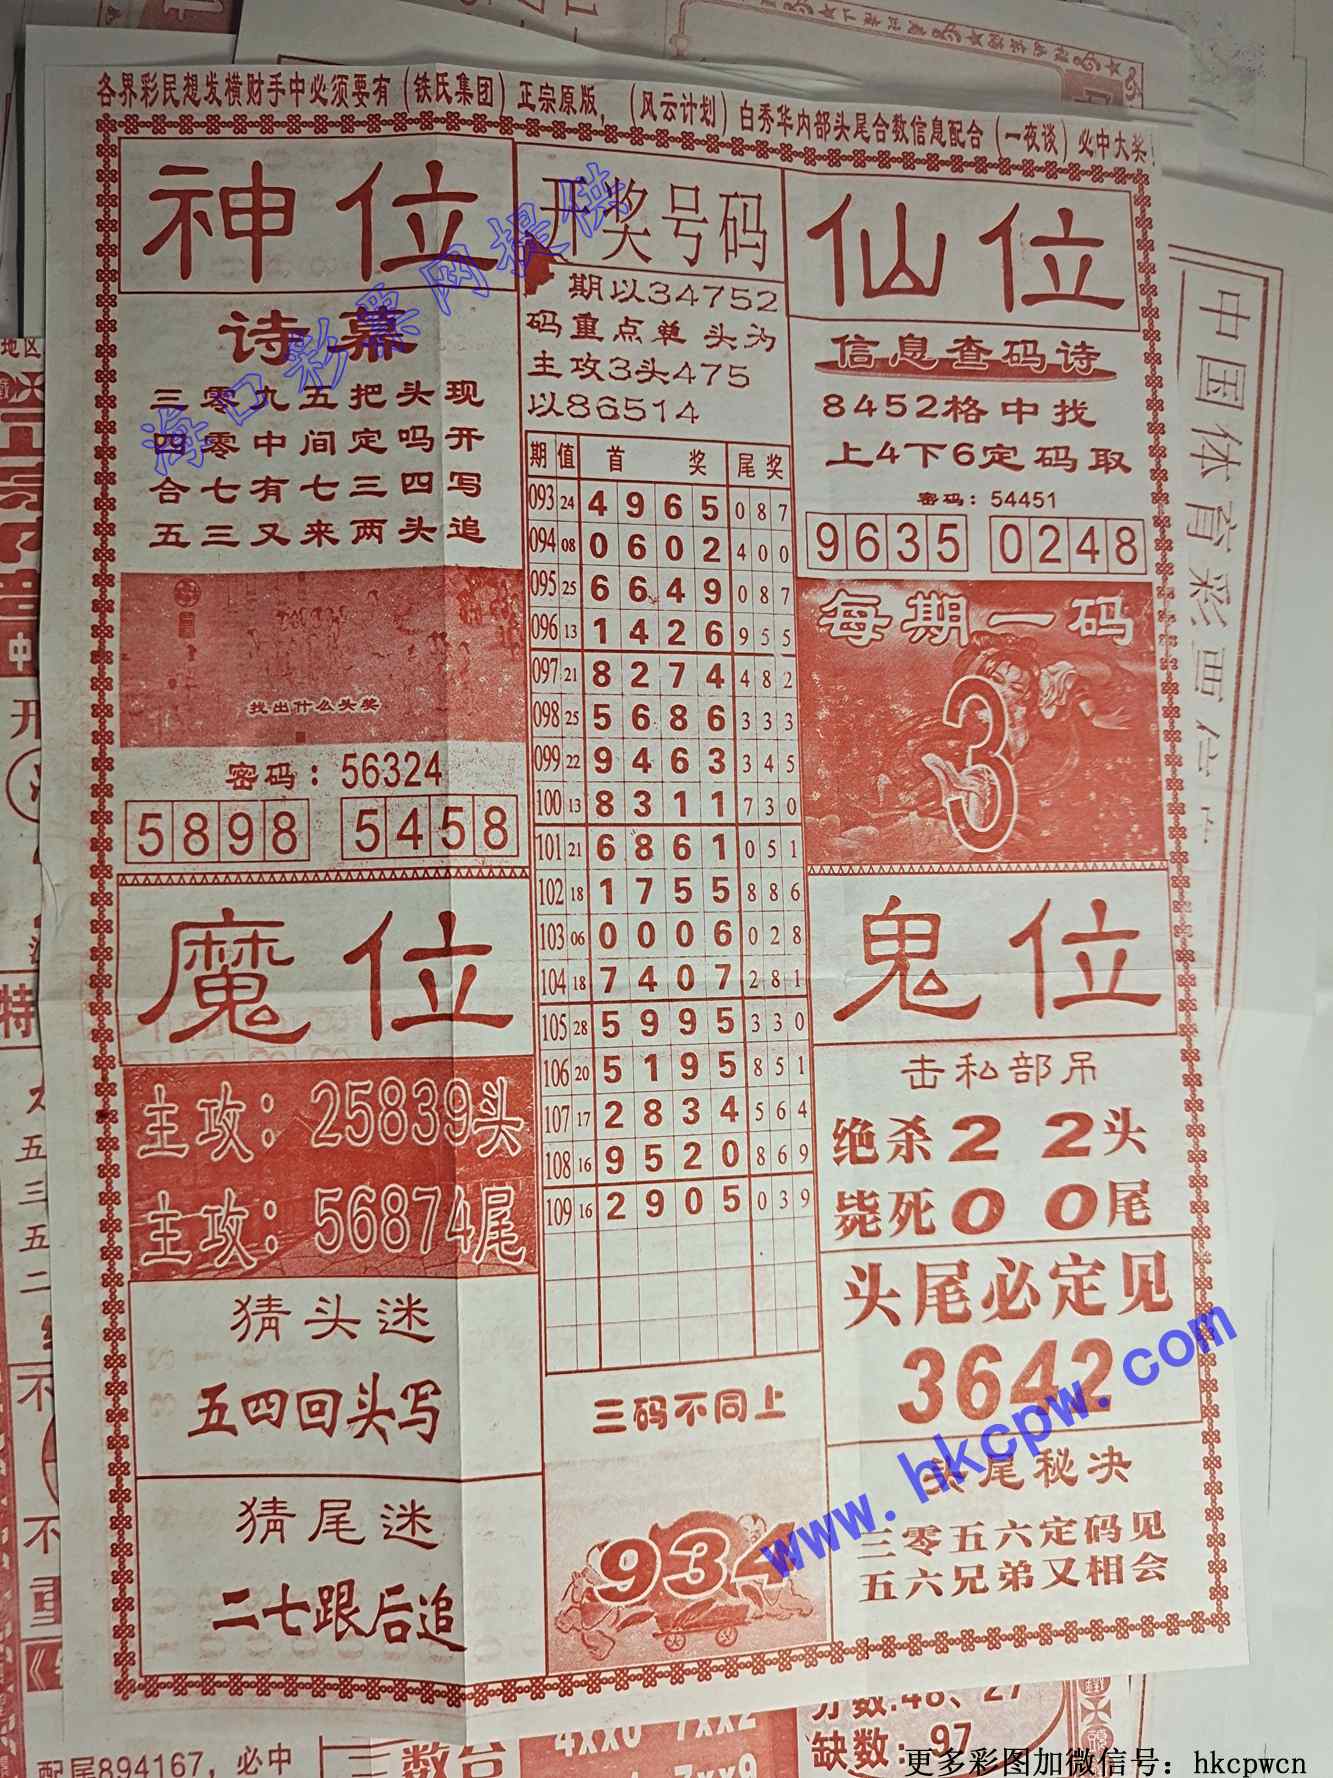 各界彩民想发横财手中必须要有（铁氏集团）正宗原版，（风云计划）白秀华内部头尾合数信息配合（一夜谈）必中大奖！
神位
诗幕
三零九五把头现
四零中间定吗开
合七有七三四写
五三又来两头追
找出什么头奖
密码：56324
5898 5458
开奖号码
期以34752
码重点单头为
主攻3头475
以86514
期 值 首奖 尾奖
093 24 4965 087
094 08 0602 400
095 25 6649 087
096 13 1426 955
097 21 8274 482
098 25 5686 333
099 22 9463 345
100 13 8311 730
101 21 6861 051
102 18 1755 886
103 06 0006 028
104 18 7407 281
105 28 5995 330
106 20 5195 851
107 17 2834 564
108 16 9520 869
109 16 2905 039
三码不同上
934
仙位
信息查码诗
8452格中找
上4下6定码取
密码：54451
9635 0248
每期一码
3
魔位
主攻：25839头
主攻：56874尾
猜头迷
五四回头写
猜尾迷
二七跟后追
鬼位
击私部吊
绝杀22头
毙死00尾
头尾必定见
3642
头尾秘决
三零五六定码见
五六兄弟又相会
海口彩票网提供
www.hkcpw.com
中国体育彩票
地区
配尾894167，必中
三数合
4xx0 7xx2
分数:48、27
缺数：97
更多彩图加微信号：hkcpwcn